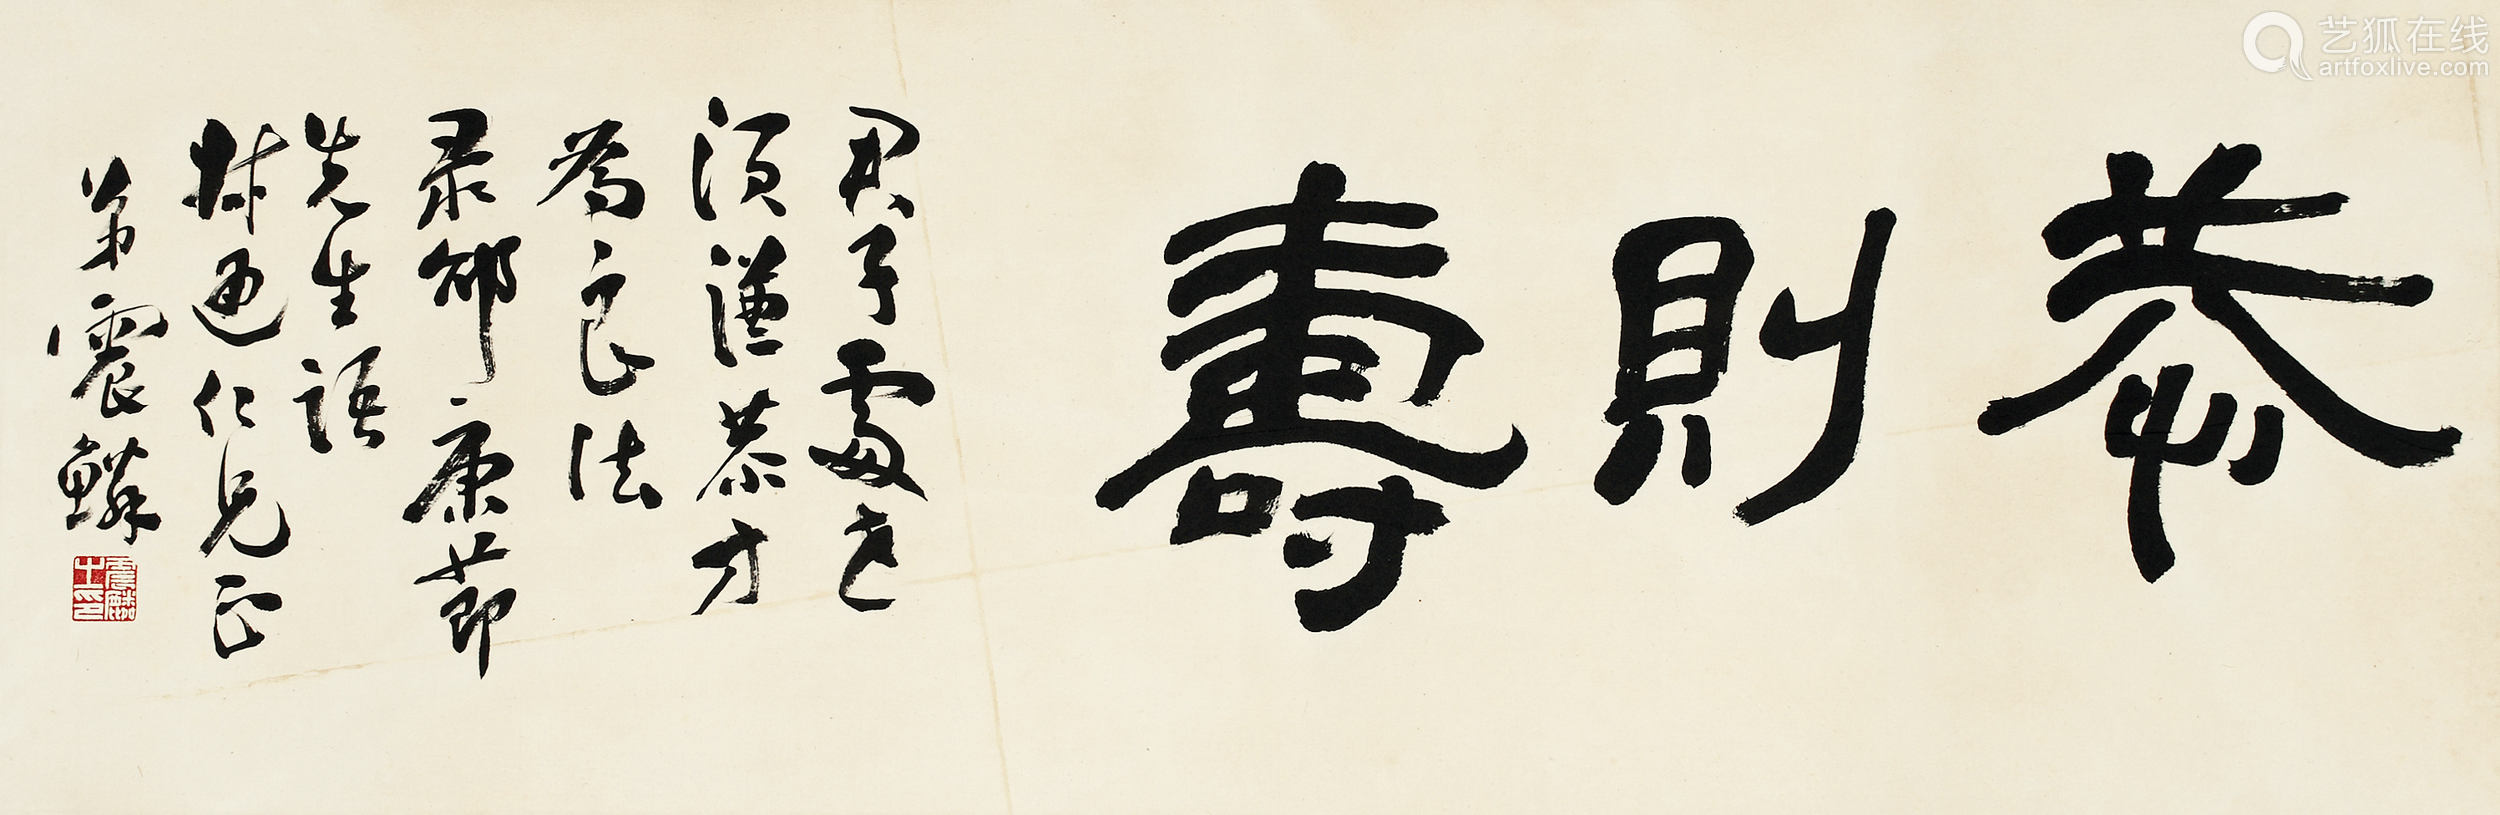 恭則壽
君子處世
須謹恭方
為良法
录邵康節
先生語
林仁兄正
弟震鱗
震鱗之印
艺狐在线
artfoxlive.com